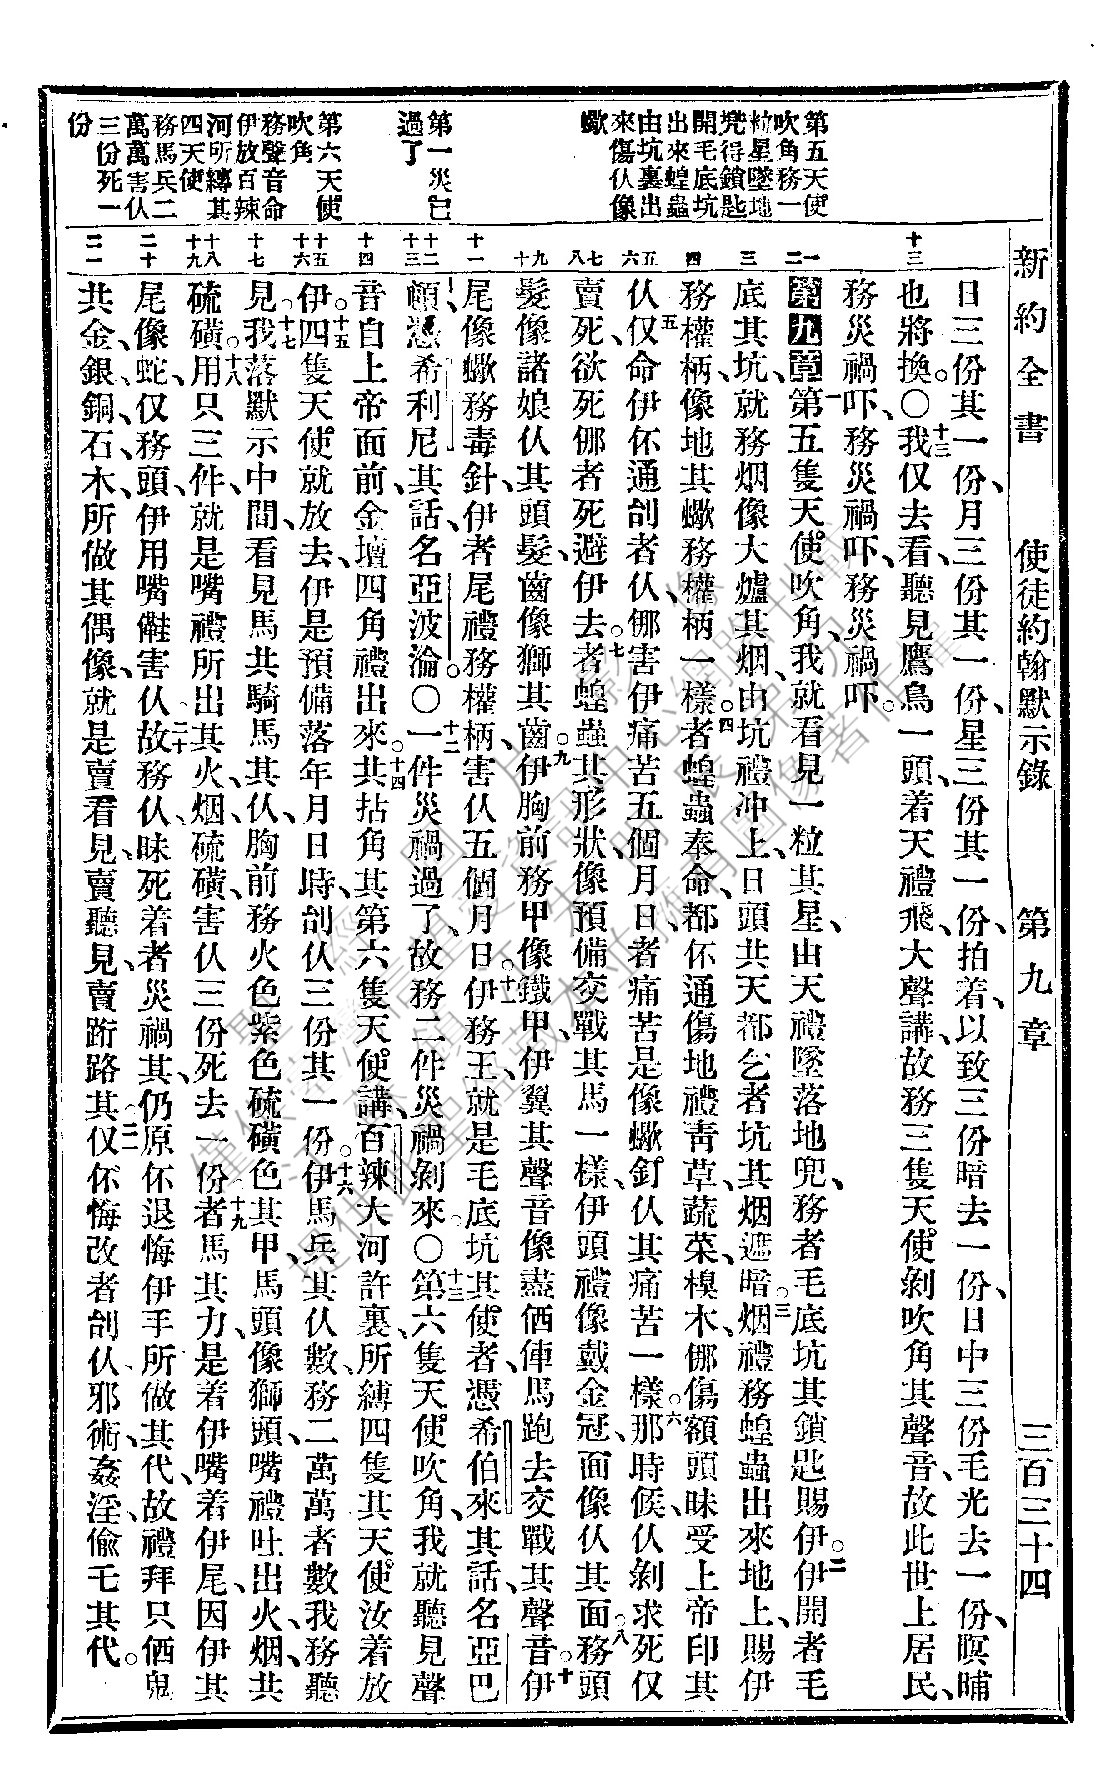 新約全書　使徒約翰默示錄　第九章　三百三十四
第五天使
吹角務一
粒星墜地
凭得鎖匙
開毛底坑
出來蝗蟲
由坑裏出
來傷仈像
蠍
第一災已
過了
第六天使
吹角
務聲音命
伊放百辣
河所縛其
四天使
務馬兵二
萬萬害仈
三份死一
份
十三
一
二
三
四
五
六
七
八
九
十
十一
十二
十三
十四
十五
十六
十七
十八
十九
二十
二一
日三份其一份、月三份其一份、星三份其一份、拍着、以致三份暗去一份、日中三份毛光去一份、暝晡
也將換。〇十三我仅去看、聽見鷹鳥一頭、着天禮飛、大聲講、故務三隻天使剝吹角其聲音、故此世上居民、
務災禍吓、務災禍吓、務災禍吓。
第九章一第五隻天使吹角、我就看見一粒其星、由天禮墜落地兜、務者毛底坑其鎖匙賜伊。二伊開者毛
底其坑、就務烟像大爐其烟、由坑禮冲上、日頭共天都乞者坑其烟遮暗。三烟禮務蝗蟲出來地上、賜伊
務權柄、像地其蠍務權柄一樣。四者蝗蟲奉命、都伓通傷地禮靑草、蔬菜、樹木、㑚傷額頭昧受上帝印其
仈。五仅命伊伓通刣者仈、㑚害伊痛苦五個月日、者痛苦是像蠍釘仈其痛苦一樣。六那時候、仈剝求死仅
賣死、欲死㑚者死避伊去。七者蝗蟲其形狀、像預備交戰其馬一樣、伊頭禮像戴金冠、面像仈其面。八務頭
髮像諸娘仈其頭髮、齒像獅其齒。九伊胸前務甲、像鐵甲、伊翼其聲音、像盡俩俥馬跑去交戰其聲音。十伊
尾像蠍務毒針、伊者尾禮務權柄、害仈五個月日。十一伊務王、就是毛底坑其使者、憑希伯來其話、名亞巴
頓、憑希利尼其話、名亞波淪。〇十二一件災禍過了、故務二件災禍剝來。〇十三第六隻天使吹角、我就聽見聲
音、自上帝面前金壇四角禮出來。十四共拈角其第六隻天使講、百辣大河許裏、所縛四隻其天使、汝着放
伊。十五四隻天使就放去、伊是預備落年月日時、刣仈三份其一份。十六伊馬兵其仈數、務二萬萬、者數我務聽
見。十七我落默示中間、看見馬共騎馬其仈、胸前務火色紫色硫磺色其甲、馬頭像獅頭、嘴禮吐出火、烟、共
硫磺。十八用只三件、就是嘴禮所出其火、烟、硫磺、害仈三份死去一份。十九者馬其力、是着伊嘴着伊尾、因伊其
尾像蛇、仅務頭、伊用嘴儺害仈。二十故務仈昧死着者災禍其、仍原伓退悔伊手所做其代、故禮拜只俩鬼
共金、銀、銅、石、木、所做其偶像、就是賣看見、賣聽見、賣跻路其。二一仅伓悔改者刣仈、邪術、姦淫、偷乇其代。